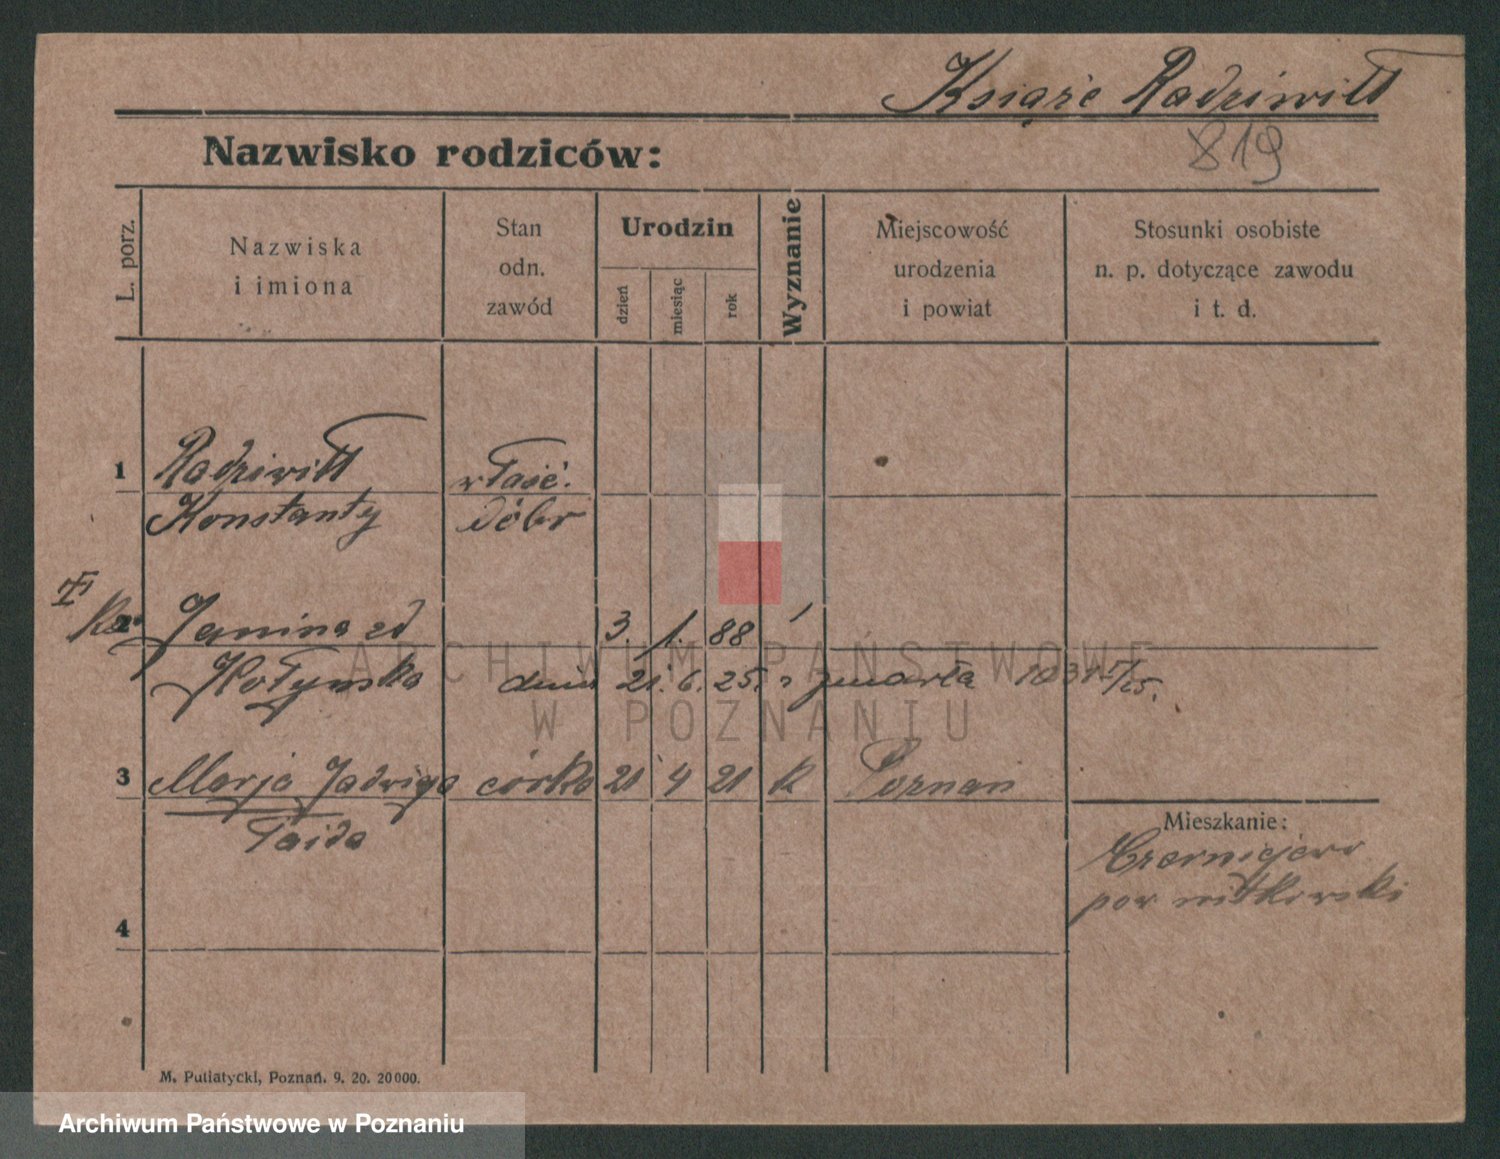 Książe Radziwiłł
819
Nazwisko rodziców:
L. porz.
Nazwiska
i imiona
Stan
odn.
zawód
Urodzin
dzień
miesiąc
rok
Wyznanie
Miejscowość
urodzenia
i powiat
Stosunki osobiste
n. p. dotyczące zawodu
i t. d.
1 Radziwiłł właść.
Konstanty dóbr
2 Janina zd 3. 1. 88
dnia 21. 6. 25. zmarła
3 Marja Jadwiga córka 21 4 21 k Poznań
Taida
Mieszkanie:
Czerniejewo
pow witkowski
4
M. Putiatycki, Poznań. 9. 20. 20000.
ARCHIWUM PAŃSTWOWE
W POZNANIU
Archiwum Państwowe w Poznaniu